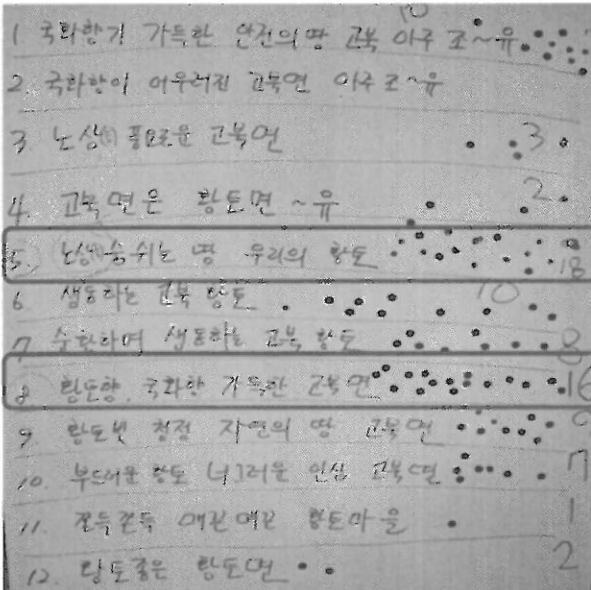 10
1 국화향기 가득한 안전의 땅 고북 아주 조~유
2. 국화향이 어우러진 고북면 아주 조~유
3. 노상 풍요로운 고북면 3
4. 고북면은 황토면~유 2
5. 노상 숨쉬는 땅 우리의 황토 18
6 생동하는 고북 황토 10
7 순환하며 생동하는 고북 황토 8
8 황토향, 국화향 가득한 고북면 16
9. 황토빛 청정 자연의 땅 고북면 9
10. 부드러운 황토 너그러운 인심 고북면 7
11. 쫀득쫀득 매끈매끈 황토마을 1
12. 황토좋은 황토면 2